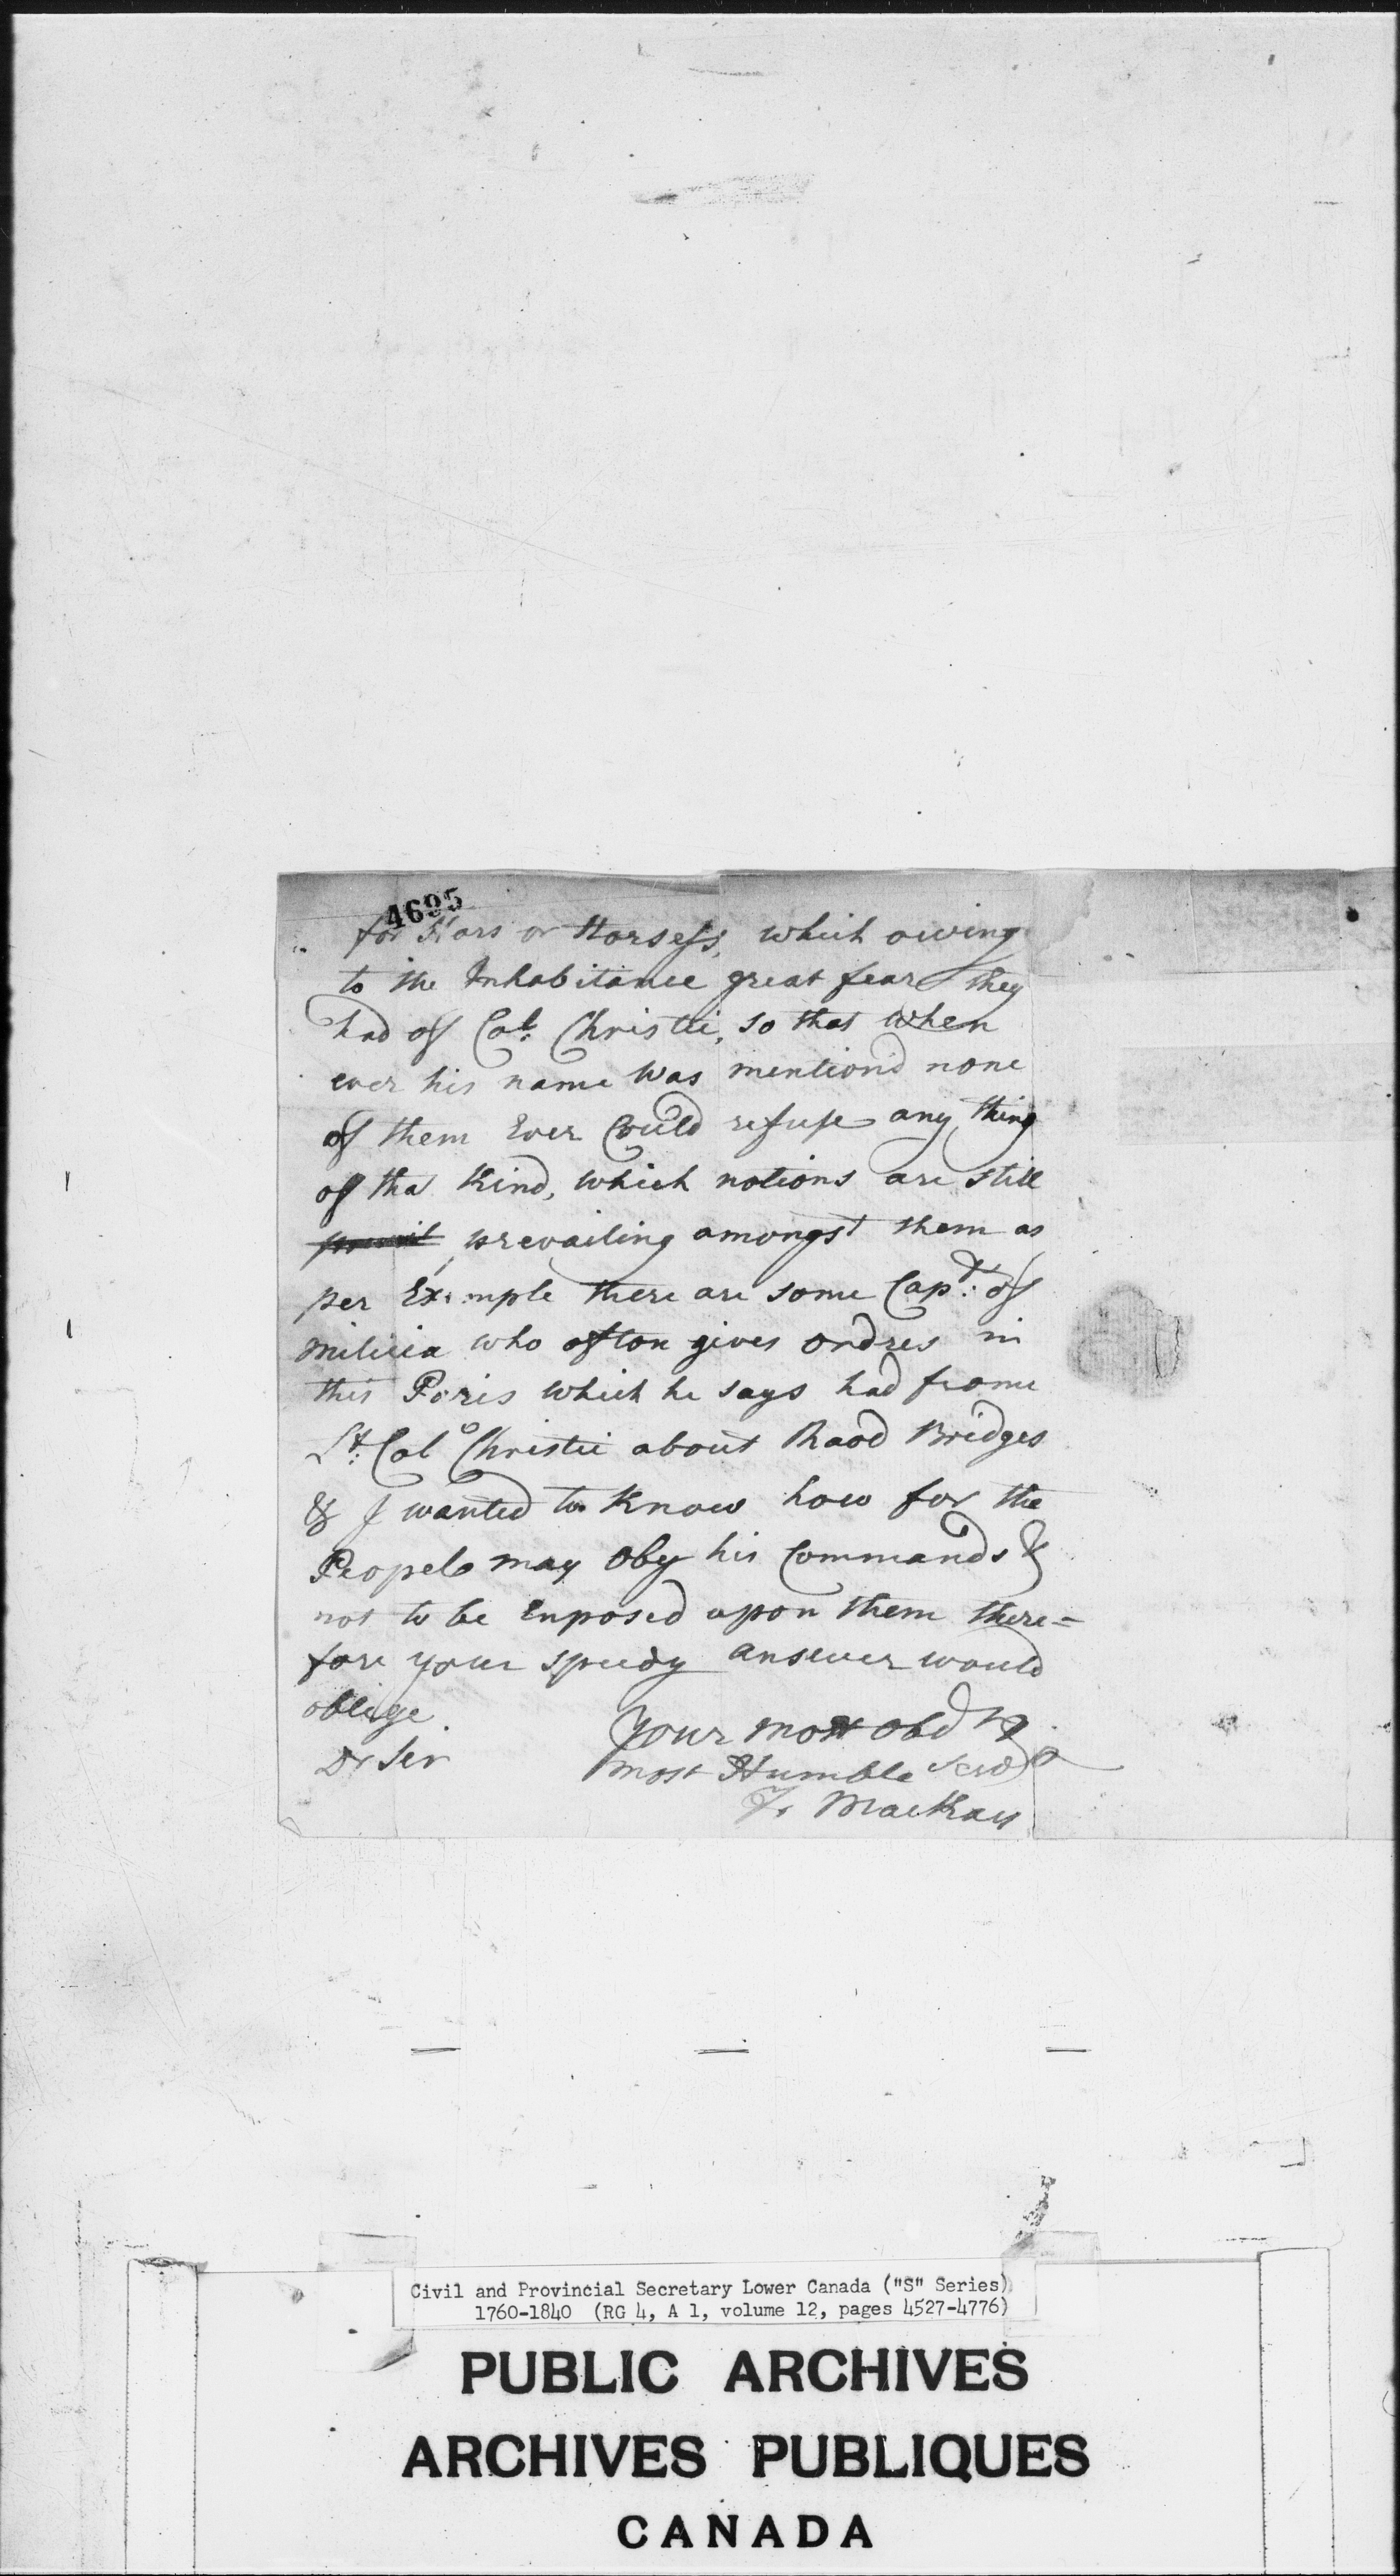 4695
for Kars or Horsess, which owing
to the Inhabitance great fear they
had of Col. Christie, so that when
ever his name was mention'd none
of them Ever Could refuse any thing
of tha Kind, which notions are still
prevailing amongst them as
per Exemple there are some Capt: of
Milicia who ofton gives ordres in
this Poris which he says had frome
Lt: Colo Christie about Raod Bridges
& I wanted to Know how for the
Peopele may oby his Commands &
not to be Enposed upon them there=
fore your speedy ansewer would
oblige
Dr Sir
Your most obd &
most Humble Servt
F. MacKay
Civil and Provincial Secretary Lower Canada ("S" Series)
1760-1840 (RG 4, A 1, volume 12, pages 4527-4776)
PUBLIC ARCHIVES
ARCHIVES PUBLIQUES
CANADA